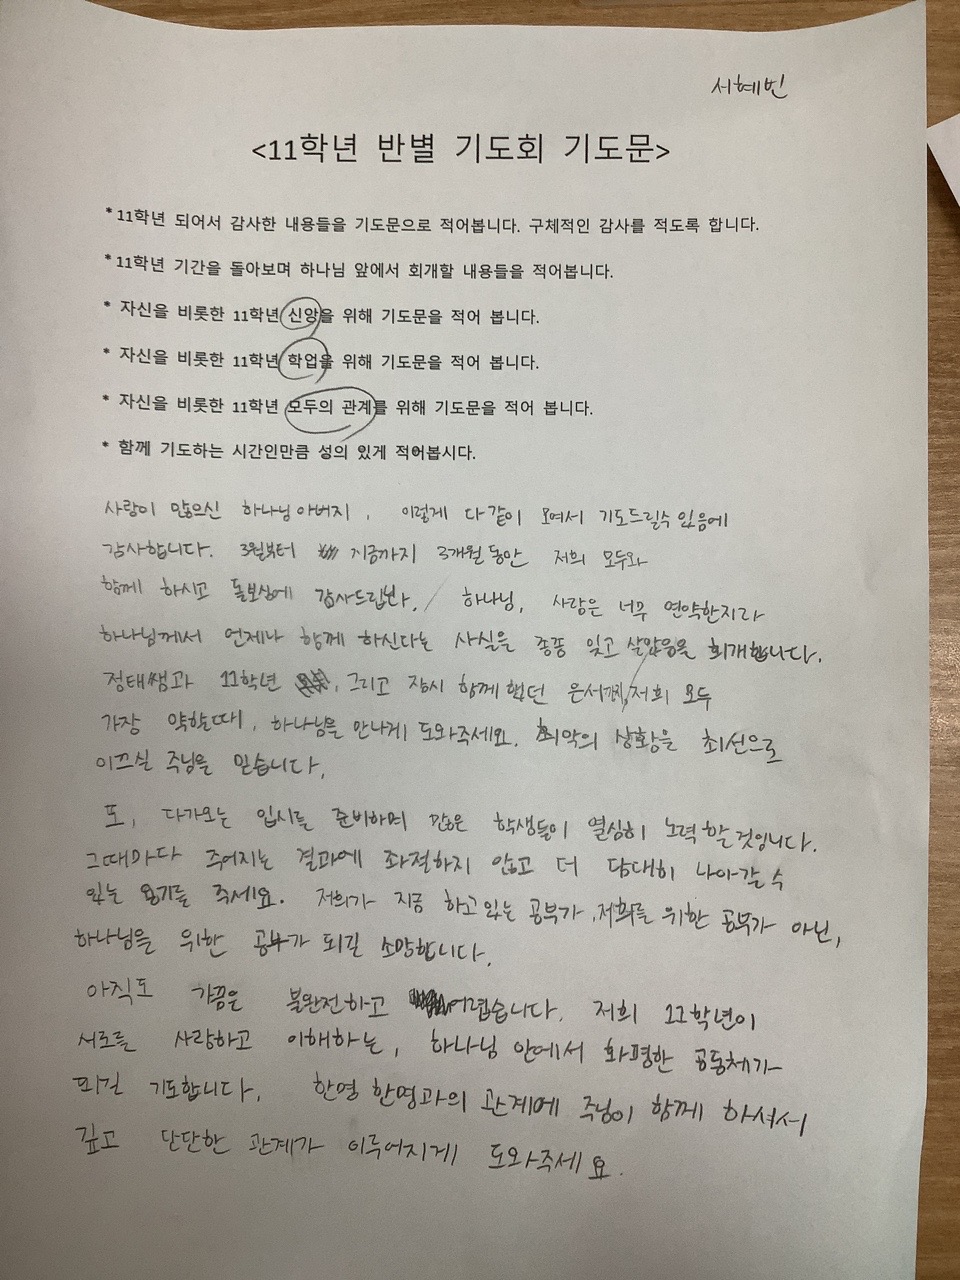 서혜빈
<11학년 반별 기도회 기도문>
*11학년 되어서 감사한 내용들을 기도문으로 적어봅니다. 구체적인 감사를 적도록 합니다.
*11학년 기간을 돌아보며 하나님 앞에서 회개할 내용들을 적어봅니다.
* 자신을 비롯한 11학년 신앙을 위해 기도문을 적어 봅니다.
* 자신을 비롯한 11학년 학업을 위해 기도문을 적어 봅니다.
* 자신을 비롯한 11학년 모두의 관계를 위해 기도문을 적어 봅니다.
* 함께 기도하는 시간인만큼 성의 있게 적어봅시다.
사랑이 많으신 하나님 아버지, 이렇게 다같이 모여서 기도드릴수 있음에
감사합니다. 3월부터 지금까지 3개월 동안 저희 모두와
함께 하시고 돌보심에 감사드립니다. / 하나님, 사람은 너무 연약한지라
하나님께서 언제나 함께 하신다는 사실을 종종 잊고 살았음을 회개합니다.
정태쌤과 11학년, 그리고 잠시 함께 했던 은서까지, 저희 모두
가장 약할때, 하나님을 만나게 도와주세요. 최악의 상황을 최선으로
이끄실 주님을 믿습니다.
또, 다가오는 입시를 준비하며 많은 학생들이 열심히 노력할 것입니다.
그때마다 주어지는 결과에 좌절하지 않고 더 담대히 나아갈 수
있는 용기를 주세요. 저희가 지금 하고있는 공부가, 저희를 위한 공부가 아닌,
하나님을 위한 공부가 되길 소망합니다.
아직도 가끔은 불완전하고 어렵습니다. 저희 11학년이
서로를 사랑하고 이해하는, 하나님 안에서 화평한 공동체가
되길 기도합니다. 한명 한명과의 관계에 주님이 함께 하셔서
깊고 단단한 관계가 이루어지게 도와주세요.